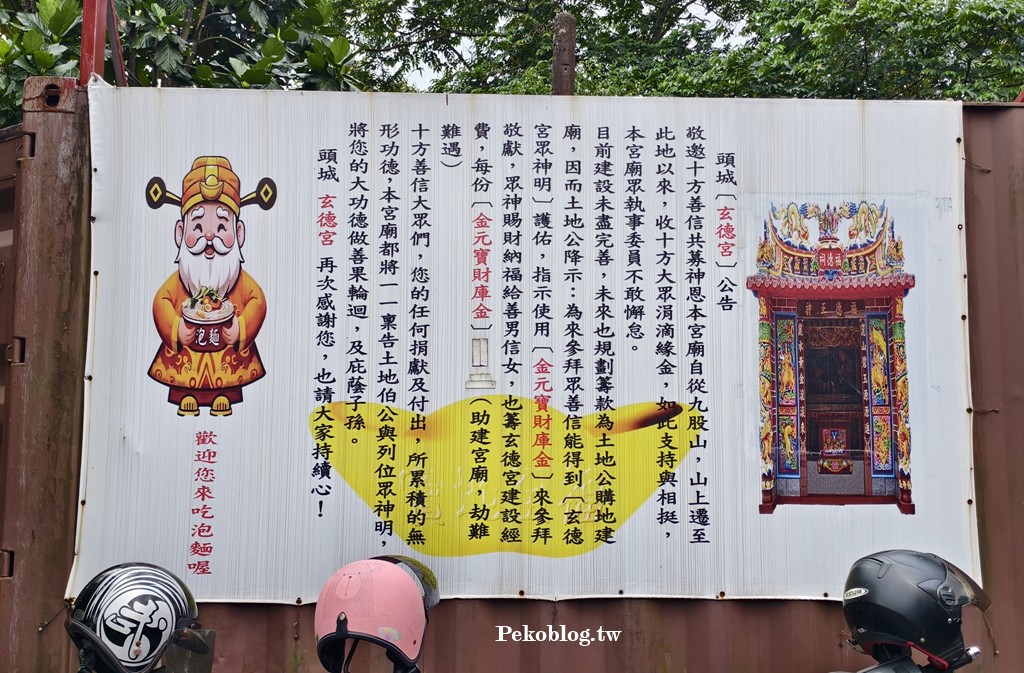 頭城〔玄德宮〕公告
敬邀十方善信共募神恩本宮廟自從九股山，山上遷至
此地以來，收十方大眾涓滴緣金，如此支持與相挺，
本宮廟眾執事委員不敢懈怠。
目前建設未盡完善，未來也規劃籌款為土地公購地建
廟，因而土地公降示：為來參拜眾善信能得到〔玄德
宮眾神明〕護佑，指示使用〔金元寶財庫金〕來參拜
敬獻，眾神賜財納福給善男信女，也籌玄德宮建設經
費，每份〔金元寶財庫金〕（助建宮廟，劫難
難遇）
十方善信大眾們，您的任何捐獻及付出，所累積的無
形功德，本宮廟都將一一稟告土地伯公與列位眾神明，
將您的大功德做善果輪迴，及庇蔭子孫。
頭城 玄德宮 再次感謝您，也請大家持續心！
泡麵
歡迎您來吃泡麵喔
福德祠
Pekoblog.tw